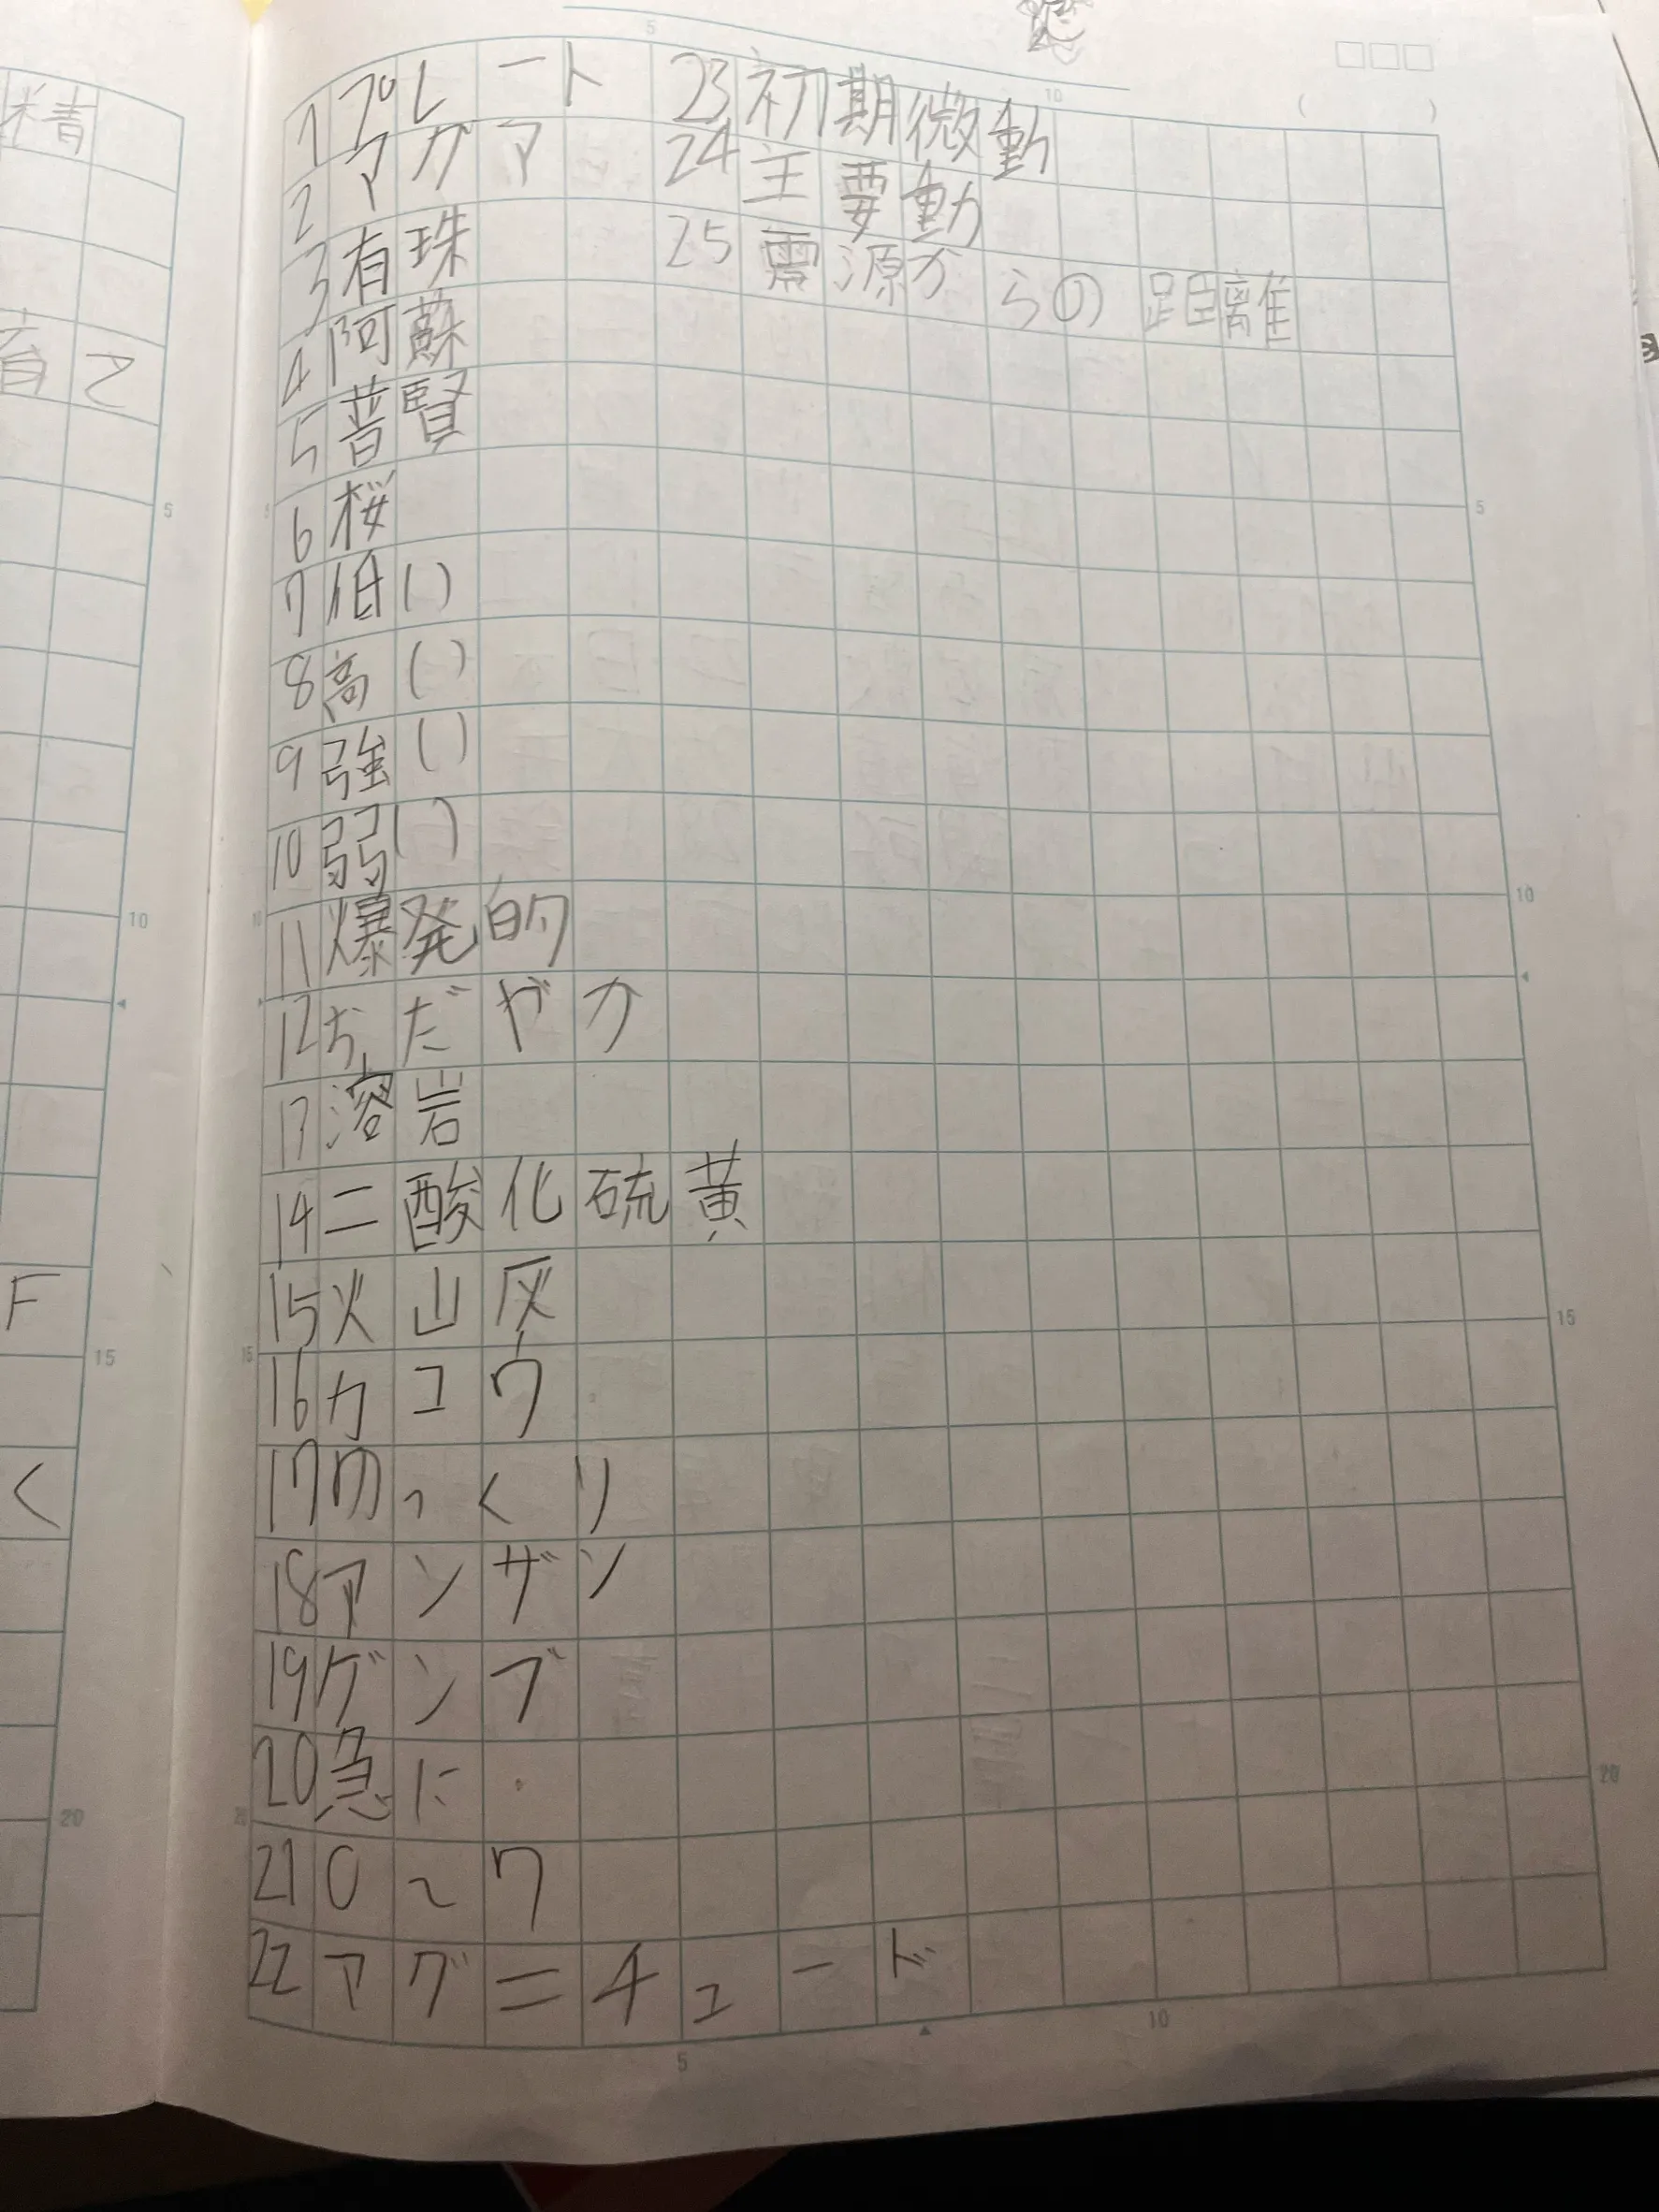 精
育て
F
く
1 プレート
2 マグマ
3 有珠
4 阿蘇
5 普賢
6 桜
7 低(い)
8 高(い)
9 強(い)
10 弱(い)
11 爆発的
12 おだやか
13 溶岩
14 二酸化硫黄
15 火山灰
16 カコウ
17 ゆっくり
18 アンザン
19 ゲンブ
20 急に
21 0~7
22 マグニチュード
23 初期微動
24 主要動
25 震源からの距離
5
10
15
20
5
10
( )
5
10
15
20
5
10
15
20
5
10